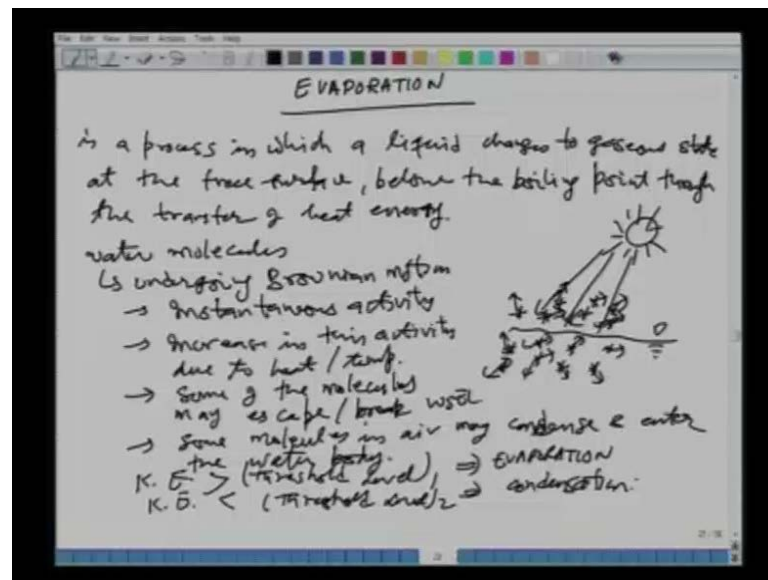 File Edit View Insert Actions Tools Help
EVAPORATION
is a process in which a liquid changes to gaseous state
at the free surface, below the boiling point through
the transfer of heat energy.
water molecules
↳ undergoing Brownian motion
→ Instantaneous activity
→ Increase in this activity
due to heat / temp.
→ Some of the molecules
may escape / break
→ Some molecules in air may condense & enter
the water body.
K. E. > (Threshold level)1 ⇒ EVAPORATION
K. E. < (Threshold level)2 ⇒ condensation.